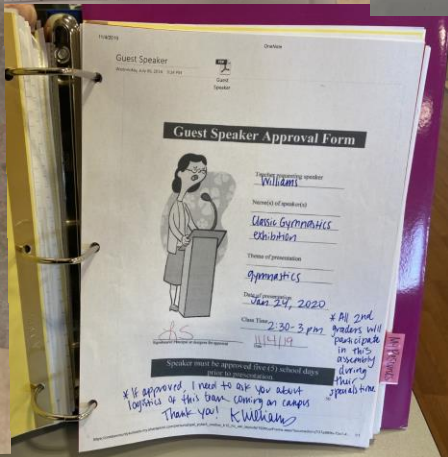 11/4/2019
OneNote
Guest Speaker
PDF
Guest
Speaker
Guest Speaker Approval Form
Teacher requesting speaker
Williams
Name(s) of speaker(s)
Classic Gymnastics
exhibition
Theme of presentation
gymnastics
Date of presentation
Jan 24, 2020
Class Time
2:30-3 pm
11/4/19
* All 2nd
graders will
participate
in this
assembly
during
their
specials time.
Speaker must be approved five (5) school days
prior to presentation
* If approved, I need to ask you about
logistics of this team coming on campus
Thank you! K Williams